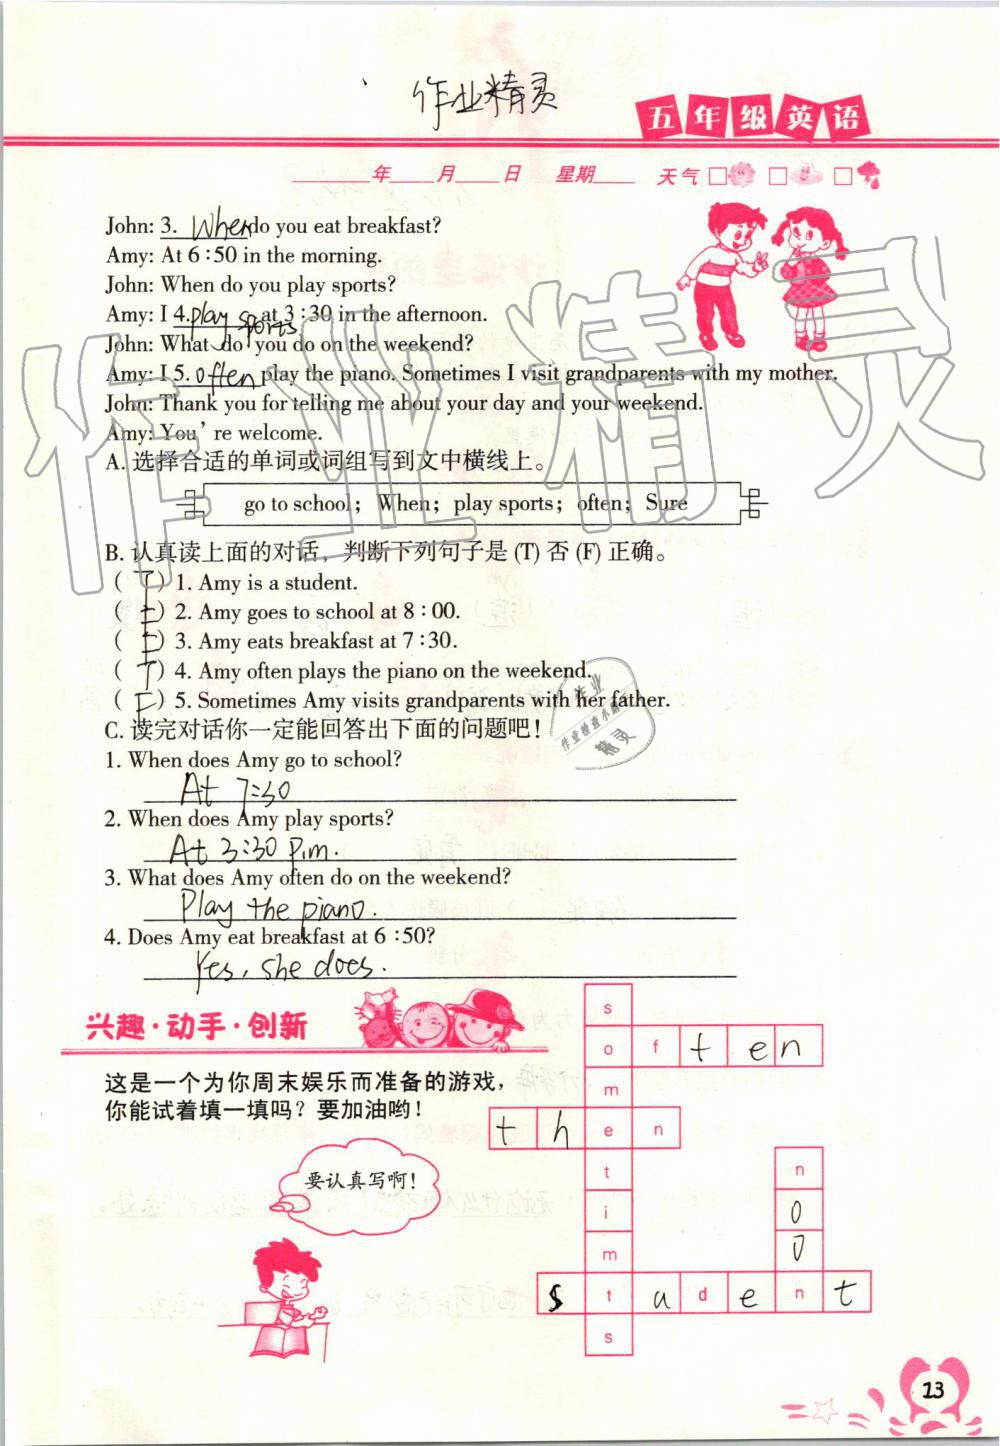 作业精灵
五年级英语
年 月 日 星期 天气
John: 3. When do you eat breakfast?
Amy: At 6:50 in the morning.
John: When do you play sports?
Amy: I 4. play sports at 3:30 in the afternoon.
John: What do you do on the weekend?
Amy: I 5. often play the piano. Sometimes I visit grandparents with my mother.
John: Thank you for telling me about your day and your weekend.
Amy: You're welcome.
A. 选择合适的单词或词组写到文中横线上。
go to school; When; play sports; often; Sure
B. 认真读上面的对话，判断下列句子是 (T) 否 (F) 正确。
( T ) 1. Amy is a student.
( F ) 2. Amy goes to school at 8:00.
( F ) 3. Amy eats breakfast at 7:30.
( T ) 4. Amy often plays the piano on the weekend.
( F ) 5. Sometimes Amy visits grandparents with her father.
C. 读完对话你一定能回答出下面的问题吧！
1. When does Amy go to school?
At 7:30
2. When does Amy play sports?
At 3:30 p.m.
3. What does Amy often do on the weekend?
Play the piano.
4. Does Amy eat breakfast at 6:50?
Yes, she does.
兴趣·动手·创新
这是一个为你周末娱乐而准备的游戏，
你能试着填一填吗？要加油哟！
要认真写啊！
s
o f t e n
m
t h e n
t n
i o
m o
s t u d e n t
s
13
作业精灵
作业
作业检查小助手
精灵